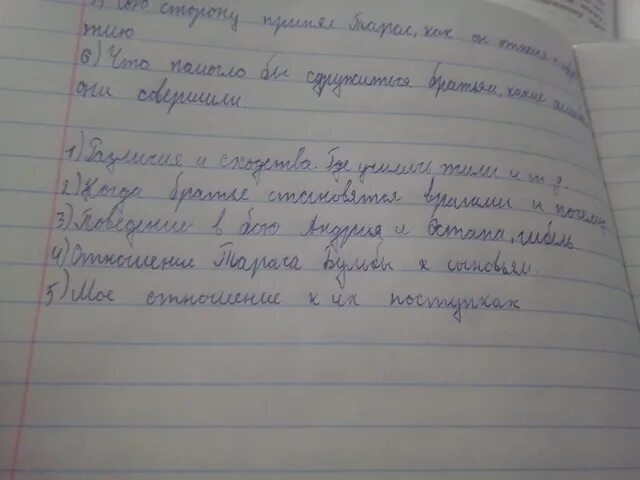 сторону принял Тарас, как он
тию
6) Что помогло бы сдружиться братьям, какие
они совершили
1) Различия и сходства. Где учились, жили и т д.
2) Когда братье становятся врагами и почему
3) Поведение в бою Андрия и Остапа, гибель.
4) Отношение Тараса Бульбы к сыновьям.
5) Мое отношение к их поступкам